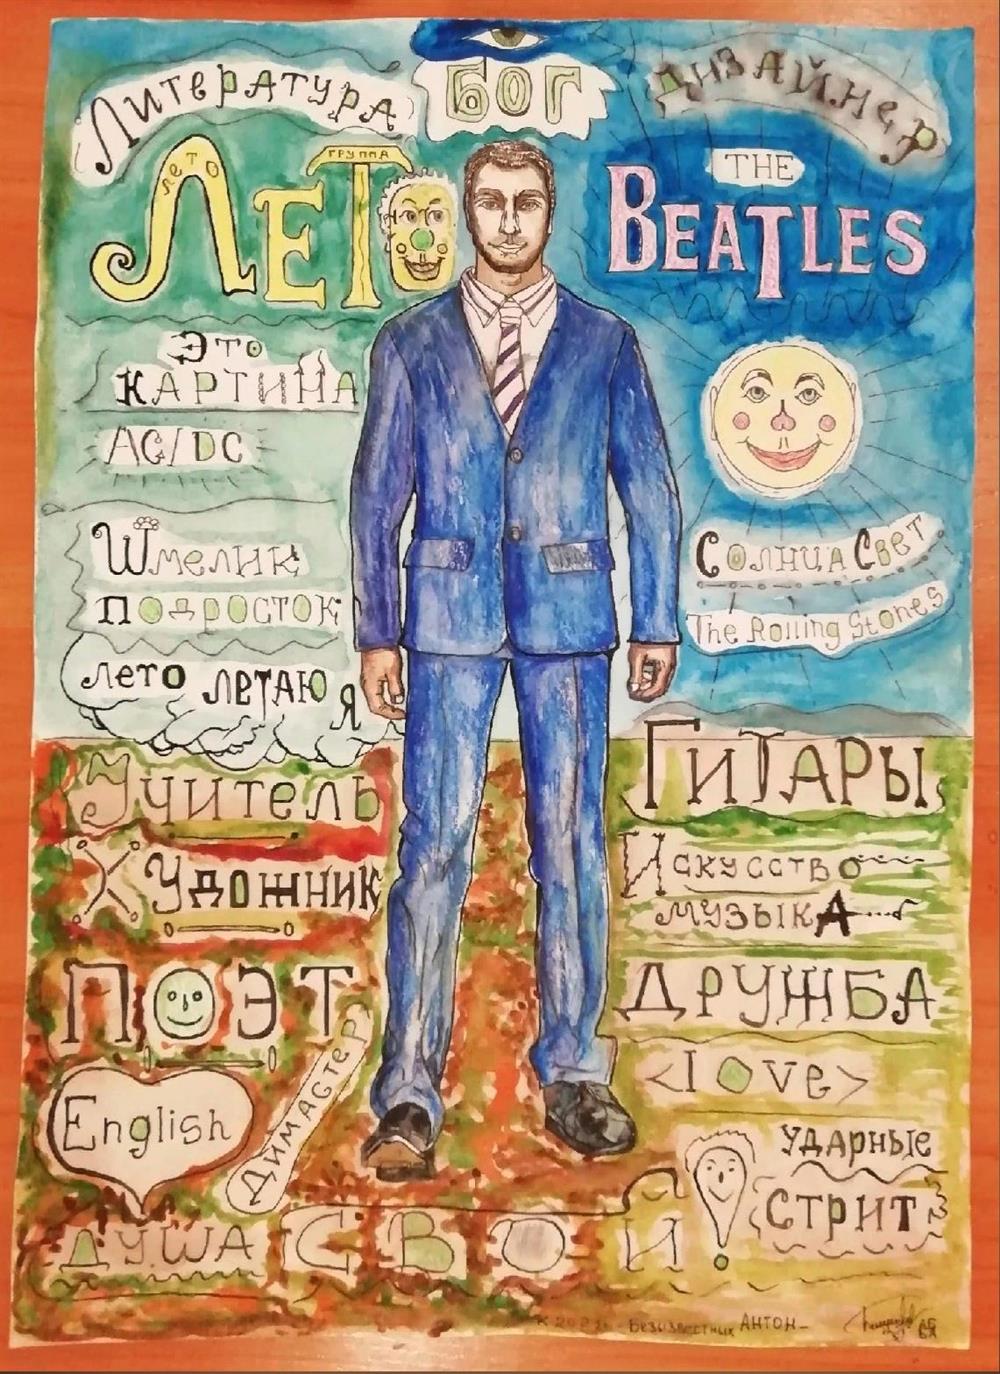 Литература
БОГ
Дизайнер
ГРУППА
лето
ЛЕТО
THE
BEATLES
Это
КАРТИНА
AC/DC
Шмелик
ПОДРОСТОК
лето ЛЕТАЮ Я
СОЛНЦА СВЕТ
The Rolling Stones
УЧИТЕЛЬ
ХУДОЖНИК
ПОЭТ
ГИТАРЫ
Искусство
МУЗЫКА
ДРУЖБА
<love>
English
ДИМАСТЕР
УДАРНЫЕ
СТРИТ
ДУША СВОЙ!
Безизвестных АНТОН